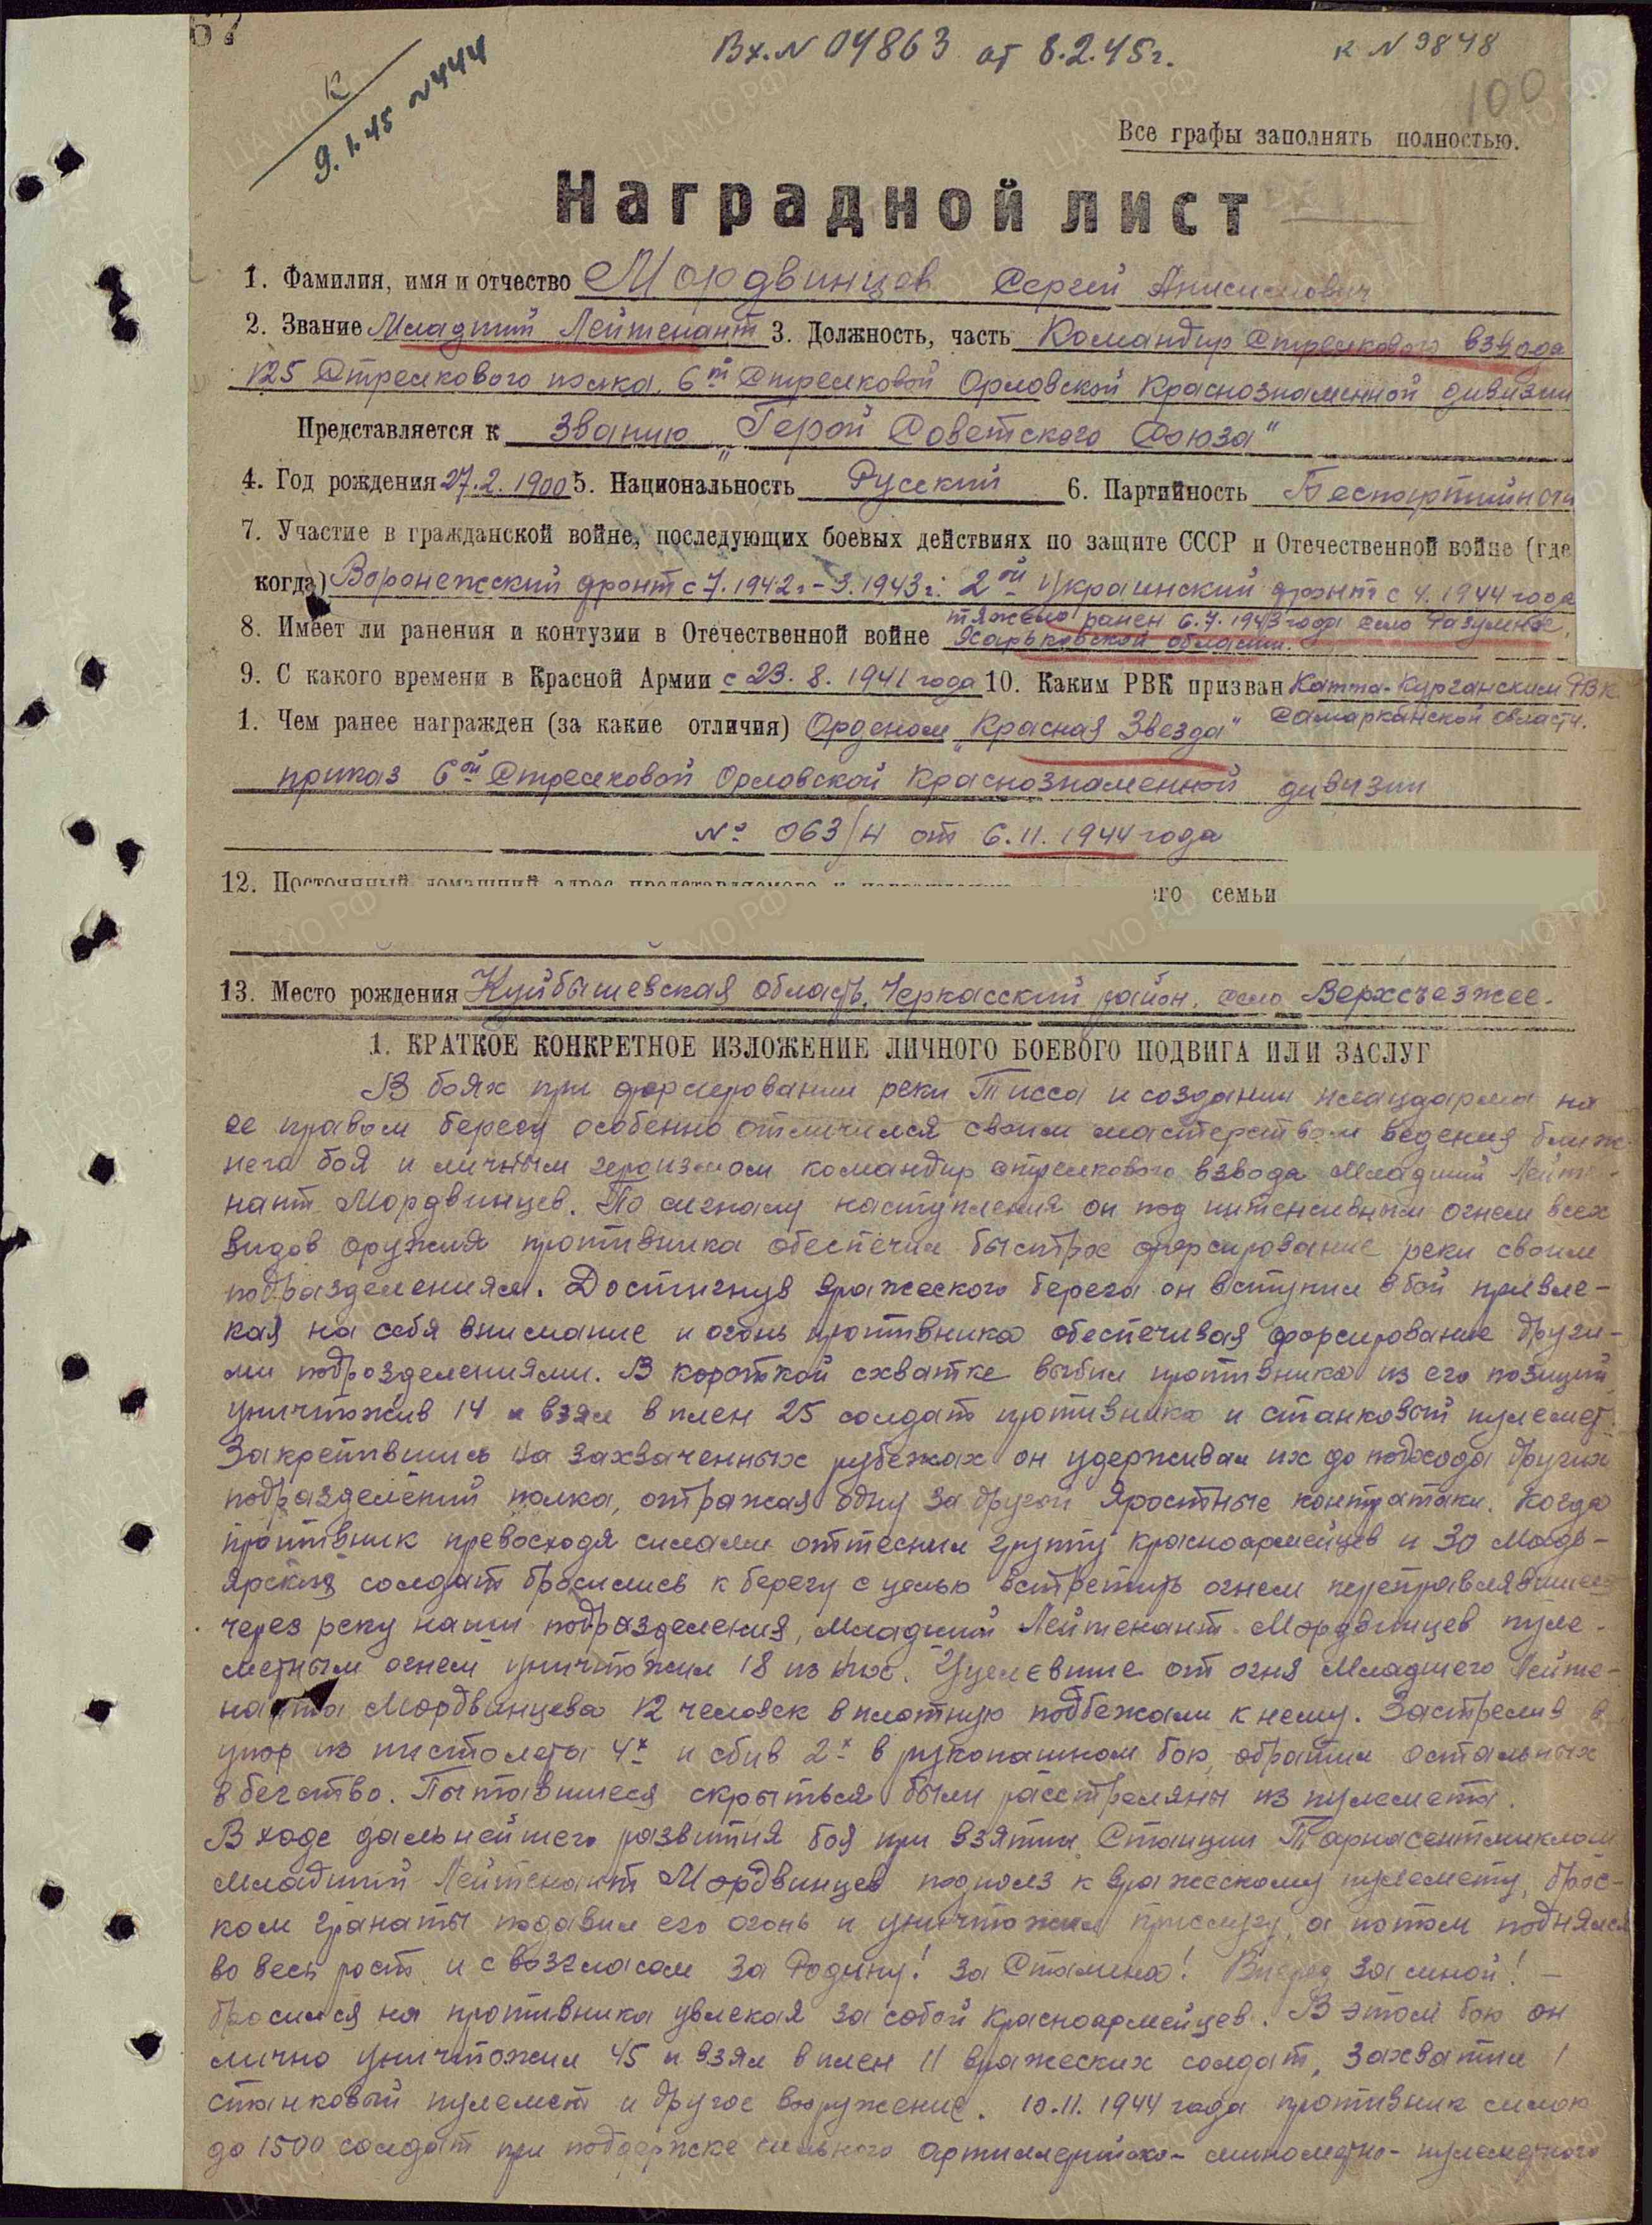 67
Вх. N 04863 от 8.2.45г.
к N 9848
К
9.1.45 N444
100
Все графы заполнять полностью.
Наградной лист
1. Фамилия, имя и отчество Мордвинцев Сергей Анисимович
2. Звание Младший Лейтенант 3. Должность, часть Командир Стрелкового взвода
125 Стрелкового полка, 6й Стрелковой Орловской Краснознаменной дивизии
Представляется к Званию „Герой Советского Союза"
4. Год рождения 27.2.1900 5. Национальность Русский 6. Партийность Беспартийный
7. Участие в гражданской войне, последующих боевых действиях по защите СССР и Отечественной войне (где
когда) Воронежский фронт с 7.1942г - 3.1943г. 2ой Украинский фронт с 4.1944 года
тяжело ранен 6.7.1943 года село Разумное,
8. Имеет ли ранения и контузии в Отечественной войне Харьковской области.
9. С какого времени в Красной Армии с 23.8.1941 года 10. Каким РВК призван Катта-Курганским РВК
Самаркандской области.
1. Чем ранее награжден (за какие отличия) Орденом „Красная Звезда"
приказ 6ой Стрелковой Орловской Краснознаменной дивизии
№ 063/н от 6.11.1944 года
12. Постоянный домашний адрес представляемого к награждению его семьи
13. Место рождения Куйбышевская область, Черкасский район, село Верхсъезжее.
1. КРАТКОЕ КОНКРЕТНОЕ ИЗЛОЖЕНИЕ ЛИЧНОГО БОЕВОГО ПОДВИГА ИЛИ ЗАСЛУГ
В боях при форсировании реки Тисса и создании плацдарма на
ее правом берегу особенно отличился своим мастерством ведения ближ-
него боя и личным героизмом командир стрелкового взвода Младший Лейте-
нант Мордвинцев. По сигналу наступления он под интенсивным огнем всех
видов оружия противника обеспечил быстрое форсирование реки своим
подразделением. Достигнув вражеского берега он вступил в бой привле-
кая на себя внимание и огонь противника обеспечивая форсирование други-
ми подразделениями. В короткой схватке выбил противника из его позиций,
уничтожив 14 и взял в плен 25 солдат противника и станковый пулемет.
Закрепившись на захваченных рубежах он удерживал их до подхода других
подразделений полка, отражая одну за другой яростные контратаки. Когда
противник превосходя силами оттеснил группу красноармейцев и 30 мадь-
ярских солдат бросились к берегу с целью встретить огнем переправлявшиеся
через реку наши подразделения, Младший Лейтенант Мордвинцев пуле-
метным огнем уничтожил 18 из них. Уцелевшие от огня Младшего Лейте-
нанта Мордвинцева 12 человек вплотную подбежали к нему. Застрелив в
упор из пистолета 4х и сбив 2х в рукопашном бою, обратил остальных
в бегство. Пытавшиеся скрыться были расстреляны из пулемета.
В ходе дальнейшего развития боя при взятии Станции Тарнасентмиклош
Младший Лейтенант Мордвинцев подполз к вражескому пулемету, брос-
ком гранаты подавил его огонь и уничтожил прислугу, а потом поднялся
во весь рост и с возгласом За Родину! За Сталина! Вперед за мной! —
бросился на противника увлекая за собой красноармейцев. В этом бою он
лично уничтожил 45 и взял в плен 11 вражеских солдат, захватил 1
станковый пулемет и другое вооружение. 10.11.1944 года противник силою
до 1500 солдат при поддержке сильного артиллерийско- минометно- пулеметного